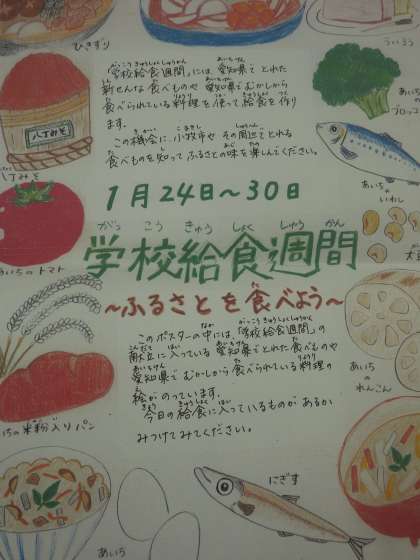 ひきずり
ういろう
「学校給食週間」には、愛知県で とれた
新せんな 食べものや 愛知県でむかしから
食べられている料理を使って給食を作り
ます。
この機会に、小牧市や その周辺でとれる
食べものを知って ふるさとの味を楽しんでください。
八丁みそ
八丁みそ
ブロッコ
あいちの
いわし
1月24日〜30日
がっ こう きゅう しょく しゅう かん
学校給食週間
〜ふるさとを食べよう〜
いちのトマト
大豆
このポスターの中には、「学校給食週間」の
献立に入っている 愛知県でとれた食べものや
愛知県で むかしから 食べられている料理の
絵がのっています。
今日の給食に入っているものがあるか
みつけてみてください。
あいちの
れんこん
ちの米粉入りパン
にぎす
あいち